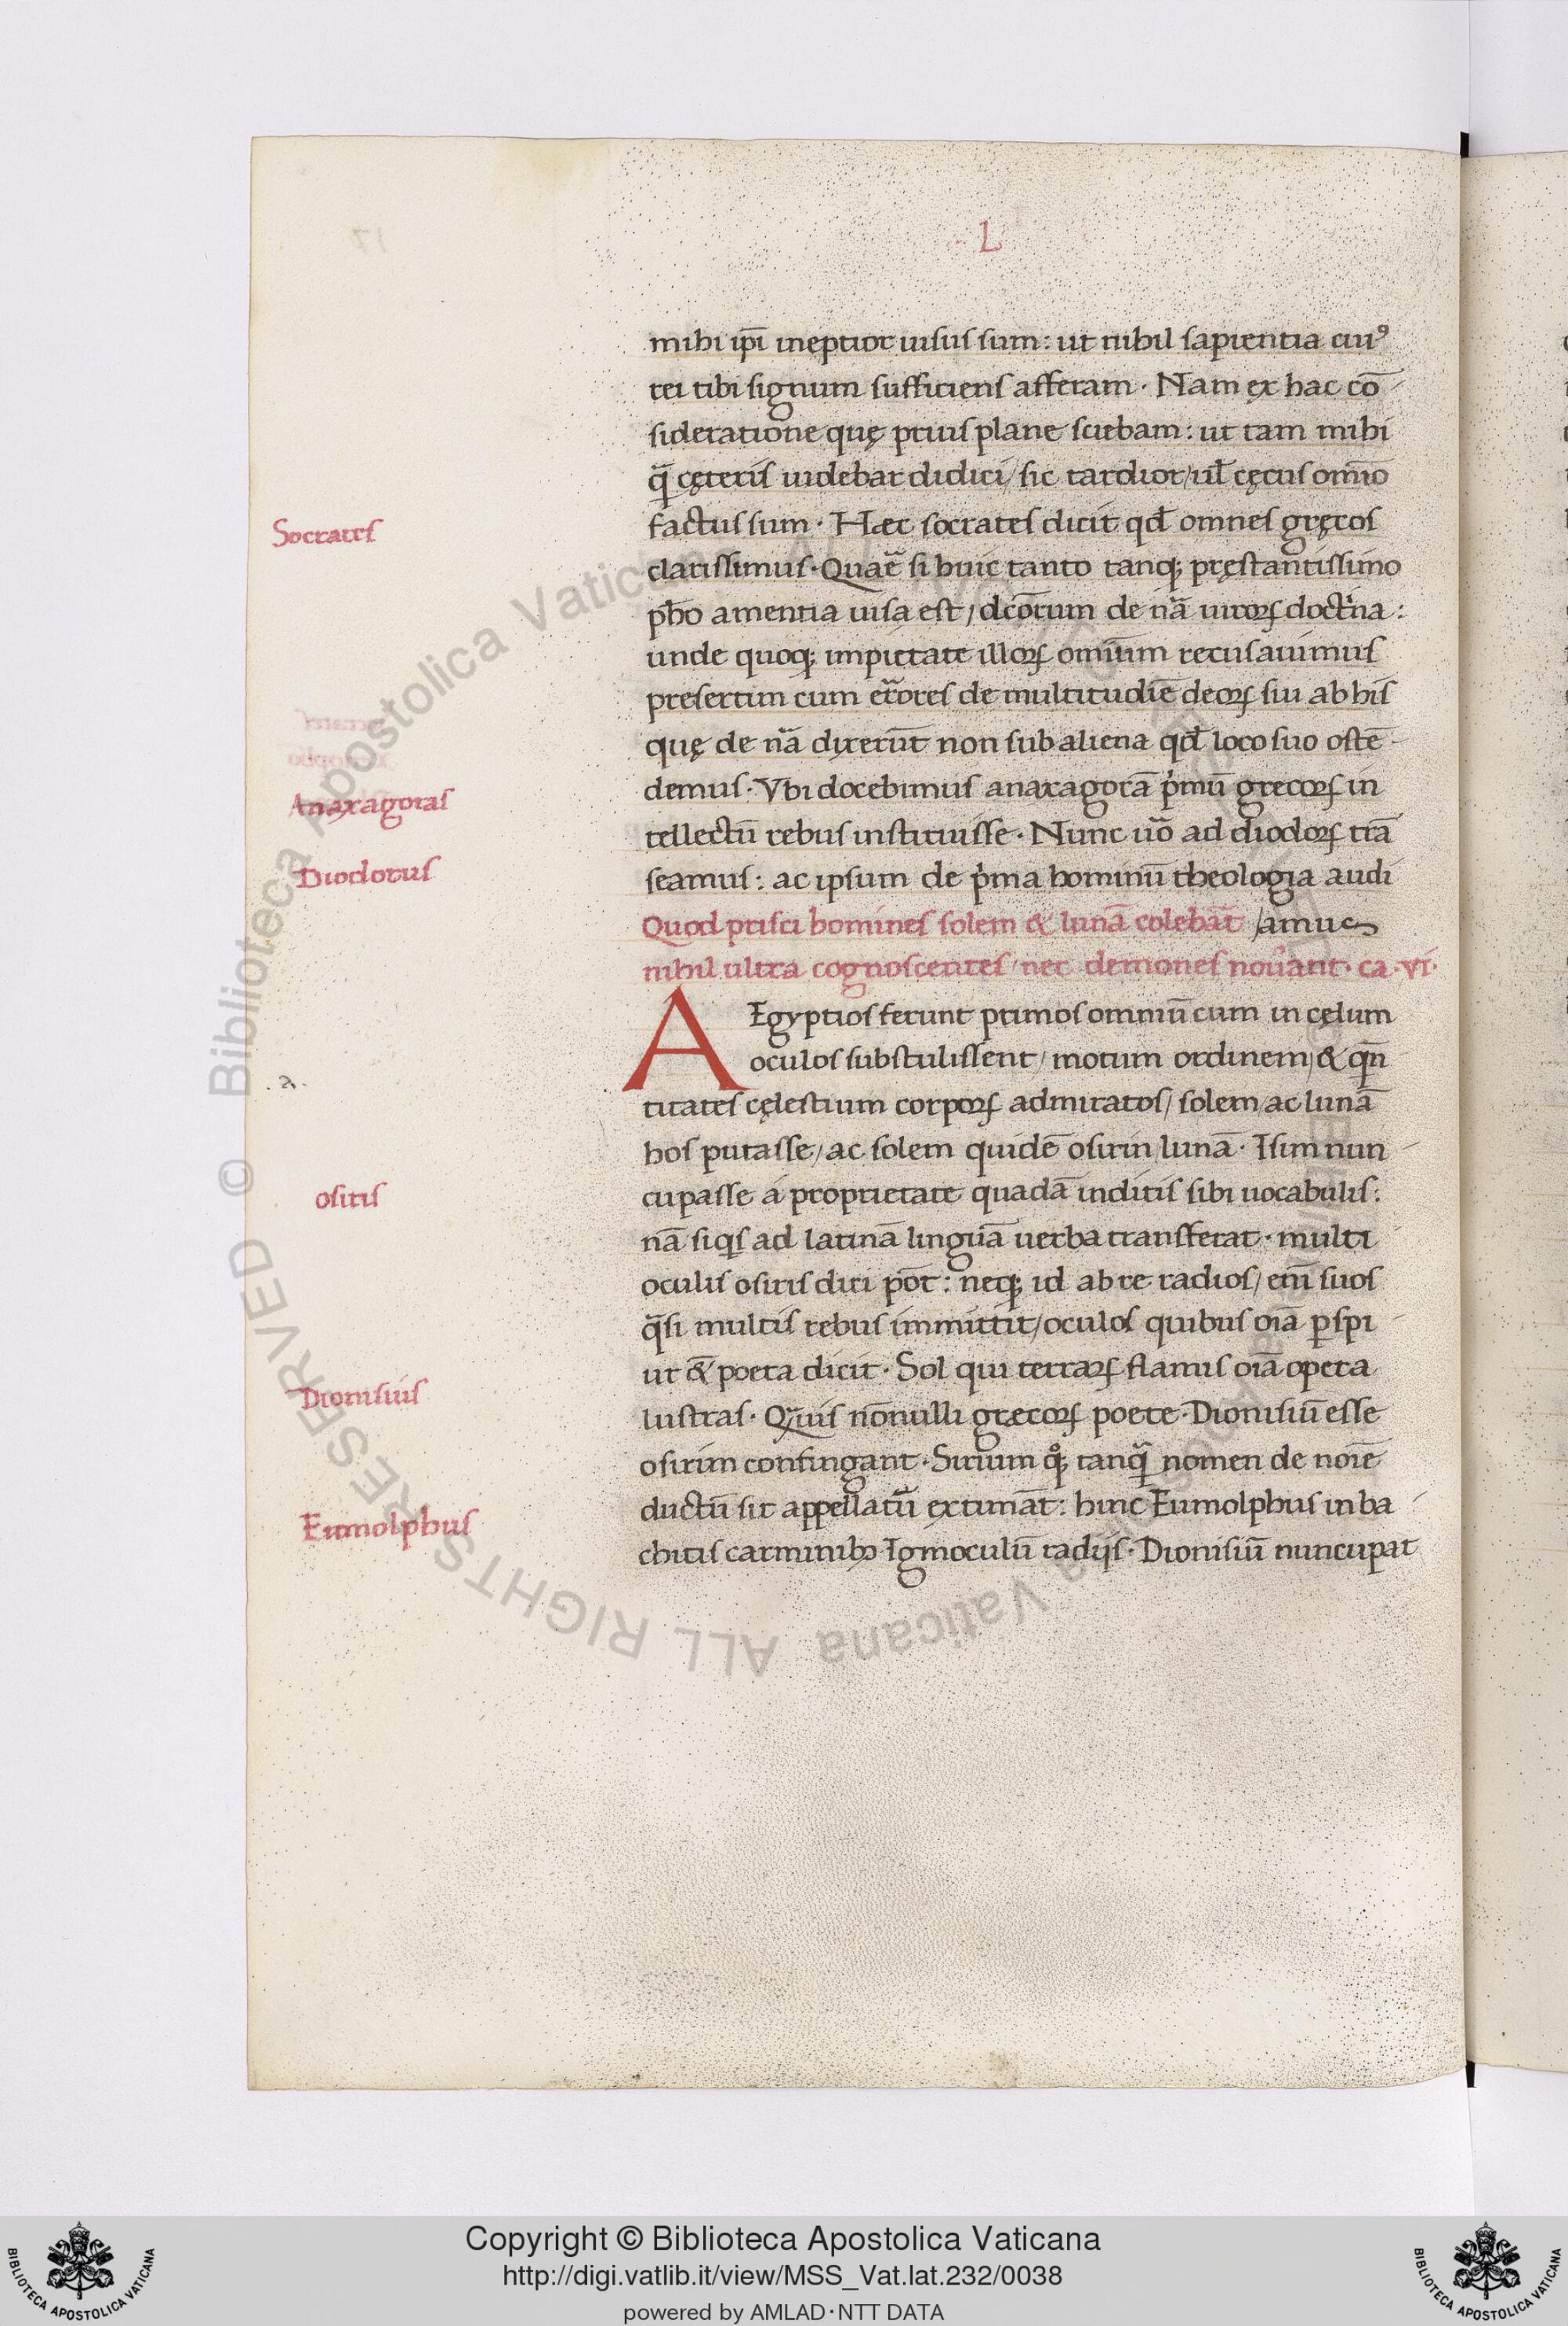 L
mihi ip̄i ineptior uisus sum: ut nihil sapientia cuiꝰ
rei tibi signum sufficiens afferam · Nam ex hac cō
sideratione quę prius plane sciebam: ut tam mihi
q̄ cęteris uidebar didici/ sic tardior/ ul̄ cęcus omīo
Socrates
factus sum · Hæc socrates dicit qd̄ omnes gręcos
clarissimus · Quar̄ si huic tanto tanq; pręstantissimo
ph̄o amentia uisa est/ dc̄orum de nā uiroꝝ doctͥna:
unde quoq; impietate illoꝝ omīum recusauimus
presertim cum er̄ores de multitudīe deoꝝ siu ab his
quę de nā dixerūt non sub aliena qd̄ loco suo ostē
Anaxagoras
demus · Vbi docebimus anaxagorā pͥmū grecoꝝ in
tellectū rebus instituisse · Nunc uō ad diodoꝝ trā
Diodorus
seamus: ac ipsum de pͥma hominū theologia audi
Quod prisci homines solem & lunā colebāt /amus
nihil ultra cognoscentes/ nec demones nou̅ant · ca · VI ·
AEgyptios ferunt primos omniū cum in cęlum
oculos substulissent/ motum ordinem/ & qn̄
.a.
titates cęlestium corpoꝝ admiratos/ solem/ ac lunā
hos putasse/ ac solem quidē osirin/ lunā · Isim nun
ositis
cupasse á proprietate quadā inditis sibi uocabulis:
nā siqͥs ad latinā linguā uerba transferat · multi
oculis osiris dici pōt: neq; id ab re radios/ em̄ suos
q̄si multis rebus immittit/ oculos quibus oīa ꝑspi
ut & poeta dicit · Sol qui terraꝝ flamis oīa opera
Dionisius
lustras · Qͣuis nōnulli græcoꝝ poete · Dionisiū esse
osirim confingant · Sirium qͦ; tanq̄ nomen de noīe
Eumolphus
ductū sit appellatū extimāt: hinc Eumolphus in ba
chitis carminibꝫ Igmoculū radijs · Dionisiū nuncupat
Copyright © Biblioteca Apostolica Vaticana
http://digi.vatlib.it/view/MSS_Vat.lat.232/0038
powered by AMLAD · NTT DATA
© Biblioteca Apostolica Vaticana ALL RIGHTS RESERVED
BIBLIOTECA APOSTOLICA VATICANA
BIBLIOTECA APOSTOLICA VATICANA